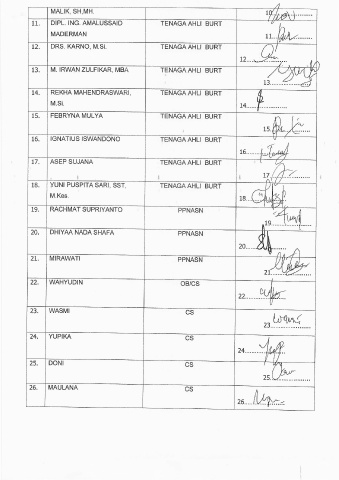 MALIK, SH,MH. 10.
11. DIPL. ING. AMALUSSAID TENAGA AHLI BURT
MADERMAN 11.
12. DRS. KARNO, M.Si. TENAGA AHLI BURT
12.
13. M. IRWAN ZULFIKAR, MBA TENAGA AHLI BURT
13.
14. REKHA MAHENDRASWARI, TENAGA AHLI BURT
M.Si. 14.
15. FEBRYNA MULYA TENAGA AHLI BURT
15.
16. IGNATIUS ISWANDONO TENAGA AHLI BURT
16.
17. ASEP SUJANA TENAGA AHLI BURT
17.
18. YUNI PUSPITA SARI, SST, TENAGA AHLI BURT
M.Kes. 18.
19. RACHMAT SUPRIYANTO PPNASN
19.
20. DHIYAA NADA SHAFA PPNASN
20.
21. MIRAWATI PPNASN
21.
22. WAHYUDIN OB/CS
22.
23. WASMI CS
23.
24. YUPIKA CS
24.
25. DONI CS
25.
26. MAULANA CS
26.